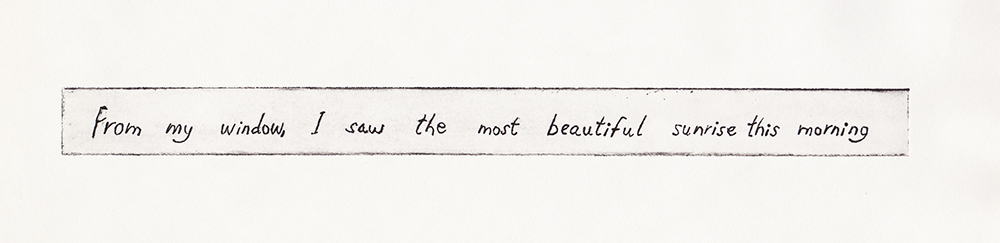 From my window, I saw the most beautiful sunrise this morning